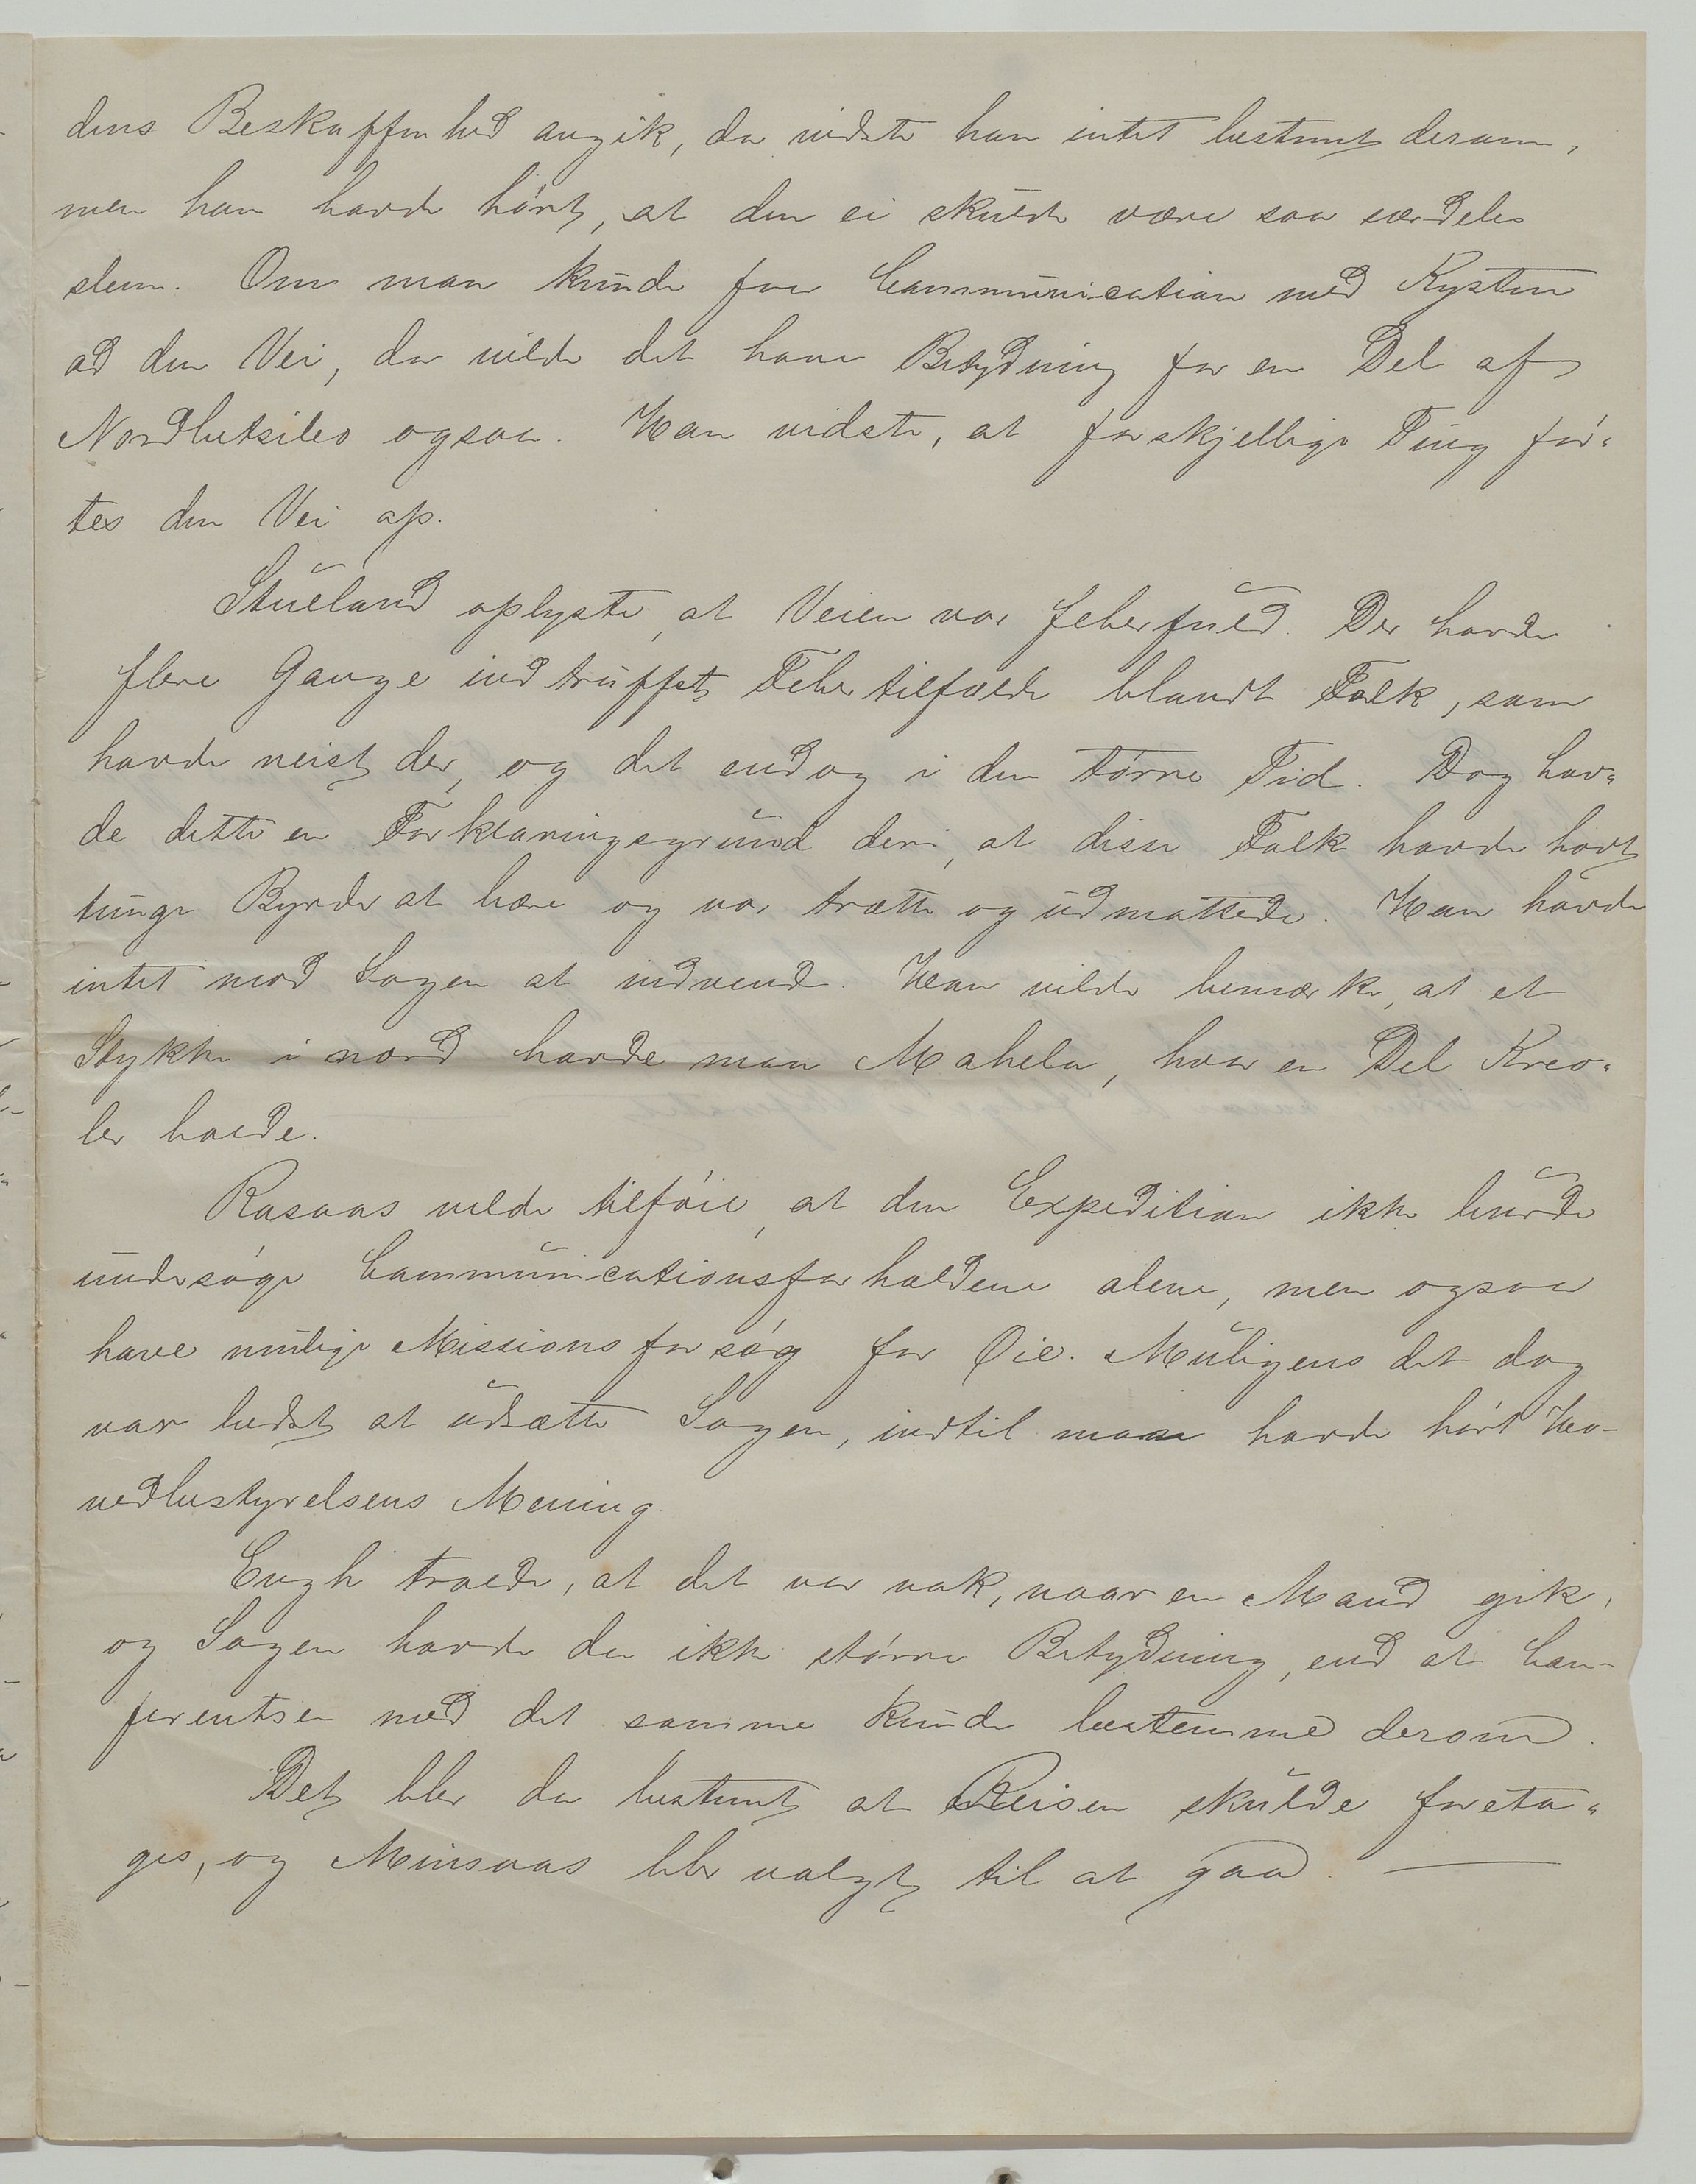 dens Beskaffenhed angik, da vidste han intet bestemt derom,
men han havde hørt, at den ei skulde være saa særdeles
slem. Om man kunde faa Communication med Kysten
ad den Vei, da vilde det have Betydning for en Del af
Nordbetsileo ogsaa. Han vidste, at forskjellige Ting før-
tes den Vei op.
Stueland oplyste, at Veien var feberfuld. Der havde
flere Gange indtruffet Febertilfælde blandt Folk, som
havde reist der, og det endog i den tørre Tid. Dog hav-
de dette en Forklaringsgrund deri, at disse Folk havde havt
tunge Byrder at bære og var trætte og udmattede. Han havde
intet mod Sagen at indvende. Han vilde bemærke, at et
Stykke i nord havde man Mahela, hvor en Del Kreo-
ler boede.
Rosaas vilde tilføie, at den Expedition ikke burde
undersøge Communicationsforholdene alene, men ogsaa
have mulige Missionsforsøg for Øie. Muligens det dog
var bedst at udsætte Sagen, indtil man havde hørt Ho-
vedbestyrelsens Mening.
Engh troede, at det var nok, naar en Mand gik,
og Sagen havde da ikke større Betydning, end at Con-
ferentsen med det samme kunde bestemme derom.
Det blev da bestemt at Reisen skulde foreta-
ges, og Minsaas blev valgt til at gaa. —